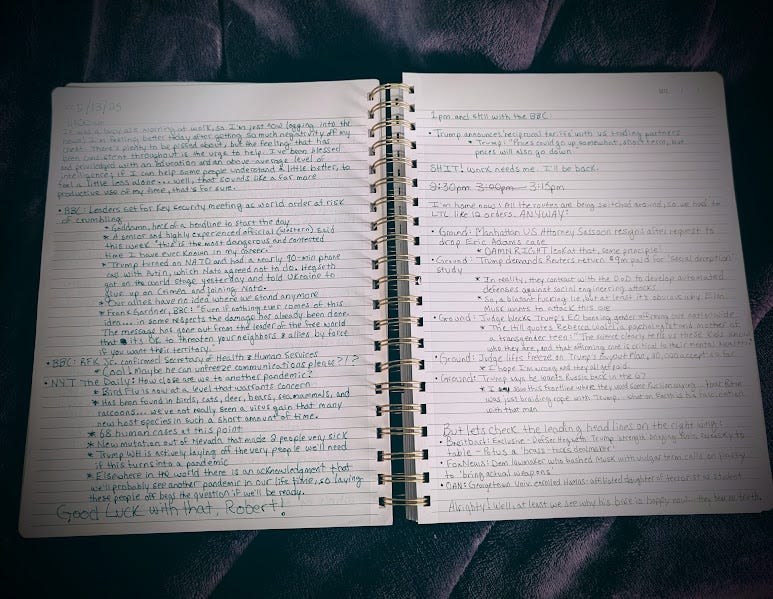 2/13/25
It was a lazy ass morning at work, so I'm just now logging into the
news. I'm feeling better today after getting so much negativity off my
chest. There's plenty to be pissed about, but the feeling that has
been consistent throughout is the urge to help. I've been blessed
and provided with an education and an above-average level of
intelligence; if I can help some people understand a little better, to
feel a little less alone... well, that sounds like a far more
productive use of my time, that's for sure.
• BBC: Leaders set for key security meeting as world order at risk
of crumbling
* Goddamn, heck of a headline to start the day
* A senior and highly experienced official (western) said
this week "this is the most dangerous and contested
time I have ever known in my career."
* Trump turned on NATO and had a nearly 90-min phone
call with Putin, which Nato agreed not to do. Hegseth
got on the world stage yesterday and told Ukraine to
give up on Crimea and joining Nato.
* Our allies have no idea where we stand anymore
* Frank Gardner, BBC: "Even if nothing ever comes of this
idea... in some respects the damage has already been done.
The message has gone out from the leader of the free world
that it's OK to threaten your neighbors & allies by force
if you want their territory."
• BBC: RFK JR. confirmed Secretary of Health & Human Services
* Cool. Maybe he can unfreeze communications please?!?
• NYT The Daily: How close are we to another pandemic?
* Bird Flu is now at a level that warrants concern
* Has been found in birds, cats, deer, bears, sea mammals, and
raccoons... we've not really seen a virus gain that many
new host species in such a short amount of time.
* 68 human cases at this point
* New mutation out of Nevada that made 2 people very sick
* Trump WH is actively laying off the very people we'll need
if this turns into a pandemic
* Elsewhere in the world there is an acknowledgment that
we'll probably see another pandemic in our life time, so laying
these people off begs the question if we'll be ready.
Good Luck with that, Robert!
1pm and still with the BBC:
• Trump announces reciprocal tariffs with US trading partners
* Trump: "Prices could go up somewhat short term, but
prices will also go down."
SHIT! Work needs me. I'll be back.
2:30pm 3:00pm 3:15pm
I'm home now! All the routes are being switched around, so we had to
LTL like 12 orders. ANYWAY:
• Ground: Manhattan US Attorney Sassoon resigns after request to
drop Eric Adams case
* DAMN RIGHT. Look at that, some principle!
• Ground: Trump demands Reuters return $9m paid for 'social deception'
study
* In reality, they contract with the DoD to develop automated
defenses against social engineering attacks
* So, a blatant fucking lie, but at least it's obvious why Elon
Musk wants to attack this one
• Ground: Judge blocks Trump's EO banning gender affirming care nationwide
* The Hill quotes Rebecca Wells, a psychologist and mother of
a transgender teen: "The ... clearly he is ... These kids know
who they are, and that affirming care is critical to their mental health."
• Ground: Judge lifts freeze on Trump's Buyout Plan,
* I hope I'm wrong and they all get paid.
• Ground: Trump says he wants Russia back in the G7
* I saw this headline where they
was just braiding rope with Trump... what on Earth is his fascination
with that man
But lets check the leading headlines on the right wing:
• Breitbart: Exclusive - DefSec Hegseth: Trump strength bringing Putin, Zelensky to
table - Potus a 'brass-tacks dealmaker'
• FoxNews: Dem lawmaker who bashed Musk with vulgar term calls on party
to 'bring actual weapons'
• OAN: Georgetown Univ. enrolled Hamas-affiliated daughter of terrorist as student
Alright! Well, at least we see why his base is happy now...